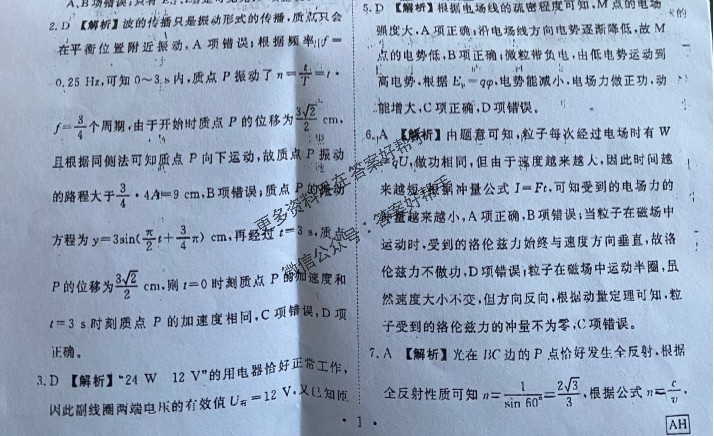 2. D 【解析】波的传播只是振动形式的传播，质点只会
在平衡位置附近振动，A 项错误；根据频率 f=
0.25 Hz，可知 0～3 s 内，质点 P 振动了 n=t/T=t·
f=3/4个周期，由于开始时质点 P 的位移为 3√2/2 cm，
且根据同侧法可知质点 P 向下运动，故质点 P 振动
的路程大于3/4·4A=9 cm，B 项错误；质点 P 的振动
方程为 y=3sin(π/2 t+3/4 π) cm，再经过 t=3 s，质点
P 的位移为3√2/2 cm，则 t=0 时刻质点 P 的加速度和
t=3 s 时刻质点 P 的加速度相同，C 项错误，D 项
正确。
3. D 【解析】“24 W 12 V”的用电器恰好正常工作，
因此副线圈两端电压的有效值 U =12 V，又已知
· 1 ·
5. D 【解析】根据电场线的疏密程度可知，M 点的电场
强度大，A 项正确；沿电场线方向电势逐渐降低，故 M
点的电势低，B 项正确；微粒带负电，由低电势运动到
高电势，根据 Eₚ=qφ，电势能减小，电场力做正功，动
能增大，C 项正确，D 项错误。
6. A 【解析】由题意可知，粒子每次经过电场时有 W
=qU，做功相同，但由于速度越来越大，因此时间越
来越短，根据冲量公式 I=Ft，可知受到的电场力的
冲量越来越小，A 项正确，B 项错误；当粒子在磁场中
运动时，受到的洛伦兹力始终与速度方向垂直，故洛
伦兹力不做功，D 项错误；粒子在磁场中运动半圈，虽
然速度大小不变，但方向反向，根据动量定理可知，粒
子受到的洛伦兹力的冲量不为零，C 项错误。
7. A 【解析】光在 BC 边的 P 点恰好发生全反射，根据
全反射性质可知 n=1/sin 60°=2√3/3，根据公式 n=c/v，
AH
更多资料 在 答案好帮手
微信公众号：答案好帮手